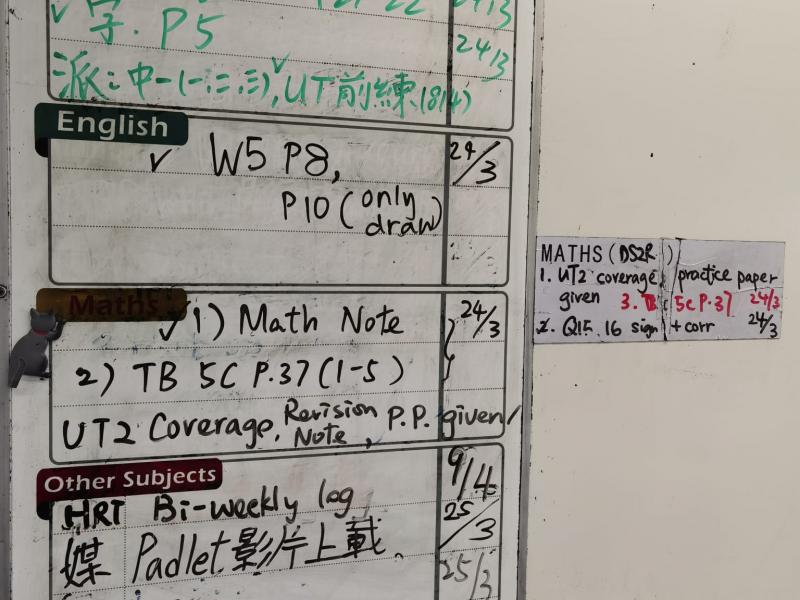 ✓字. P5 24/3
24/3
派:中一(一,二,三),✓UT前練(8/4)
English
✓ W5 P8, 24/3
P10 (only draw)
Maths
✓1) Math Note 24/3
2) TB 5C P.37 (1-5)
UT2 Coverage, Revision Note, P.P. given/
Other Subjects
HRT Bi-weekly log 9/4
媒 Padlet影片上載. 25/3
25/3
MATHS (DS2R)
1. UT2 coverage, practice paper
given 3. TB: 5C P.37 24/3
2. Q15, 16 sign + corr 24/3